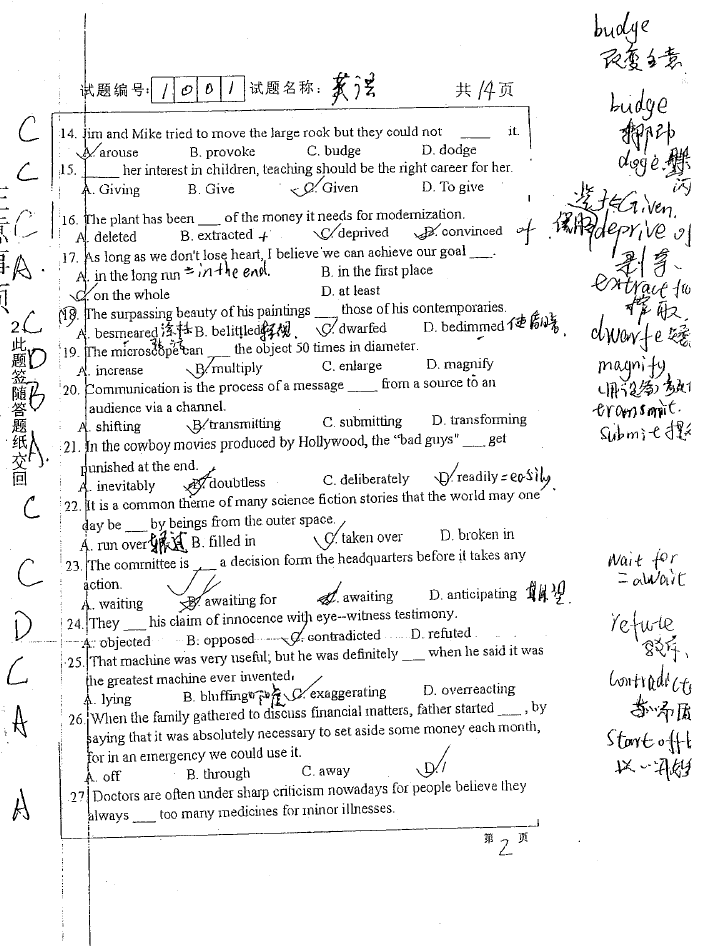 budge
改变主意
试题编号: 1001 试题名称: 英语 共 14 页
budge
C
14. Jim and Mike tried to move the large rock but they could not ____ it.
A. arouse B. provoke C. budge D. dodge
C
15. ____ her interest in children, teaching should be the right career for her.
A. Giving B. Give C. Given D. To give
选择Given.
C
16. The plant has been ___ of the money it needs for modernization.
A. deleted B. extracted C. deprived D. convinced of 信服
deprive of
剥夺、
A.
17. As long as we don't lose heart, I believe we can achieve our goal ___.
A. in the long run = in the end. B. in the first place
C. on the whole D. at least
extract
榨取
C
18. The surpassing beauty of his paintings ___ those of his contemporaries.
A. besmeared B. belittled 轻视 C. dwarfed D. bedimmed 使后暗
dwarfe
D
19. The microscope can ___ the object 50 times in diameter.
A. increase B. multiply C. enlarge D. magnify
magnify
B
20. Communication is the process of a message ____ from a source to an
audience via a channel.
A. shifting B. transmitting C. submitting D. transforming
transmit.
submit
A.
21. In the cowboy movies produced by Hollywood, the "bad guys" ___ get
punished at the end.
A. inevitably B. doubtless C. deliberately D. readily = easily
C
22. It is a common theme of many science fiction stories that the world may one
day be ___ by beings from the outer space.
A. run over 辗过 B. filled in C. taken over D. broken in
C
23. The committee is ___ a decision form the headquarters before it takes any
action.
A. waiting B. awaiting for C. awaiting D. anticipating 期望.
wait for
= await
D
24. They ___ his claim of innocence with eye--witness testimony.
A. objected B. opposed C. contradicted D. refuted
refute
C
25. That machine was very useful; but he was definitely ___ when he said it was
the greatest machine ever invented.
A. lying B. bluffing C. exaggerating D. overreacting
contradict
A
26. When the family gathered to discuss financial matters, father started ___, by
saying that it was absolutely necessary to set aside some money each month,
for in an emergency we could use it.
A. off B. through C. away D. /
start off
以一开始
A
27 Doctors are often under sharp criticism nowadays for people believe they
always ___ too many medicines for minor illnesses.
第 2 页
此题签随答题纸交回